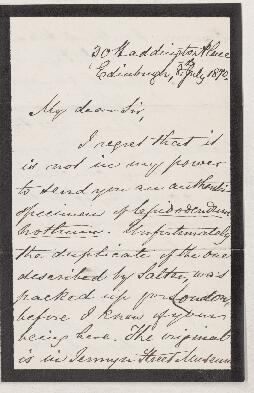 30 Haddington Place
Edinburgh, 8th July 1872.
My dear Sir,
I regret that it
is not in my power
to send you an authentic
specimen of Lepidodendron
. Unfortunately
the duplicate of the one
described by Salter, was
packed up for London,
before I knew of your
being here. The original
is in Jermyn Street Museum